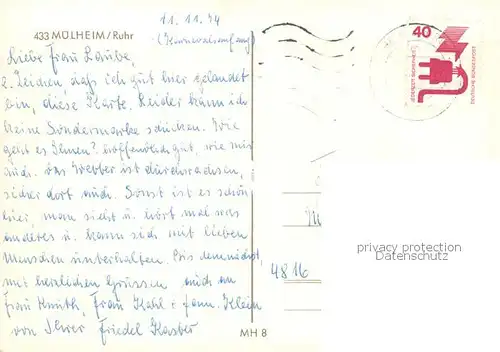 11.11.74
433 MÜLHEIM/Ruhr
(Karnevalsanfang)
Liebe Frau Laube,
z. Zeichen, daß ich gut hier gelandet
bin, diese Karte. Leider kann ich
keine Sondermarke schicken. Wie
geht es Ihnen? Hoffentlich gut, wie mir
auch. Das Wetter ist durchwachsen,
sicher dort auch. Sonst ist es schön
hier, man sieht u. hört mal was
anderes u. kann sich mit lieben
Menschen unterhalten. Bis demnächst,
mit herzlichen Grüssen auch an
Frau Knuth, Frau Kahl + Fam. Klein
von Ihrer Friedel
MH 8
40
JEDERZEIT SICHERHEIT
DEUTSCHE BUNDESPOST
privacy protection
Datenschutz
4816